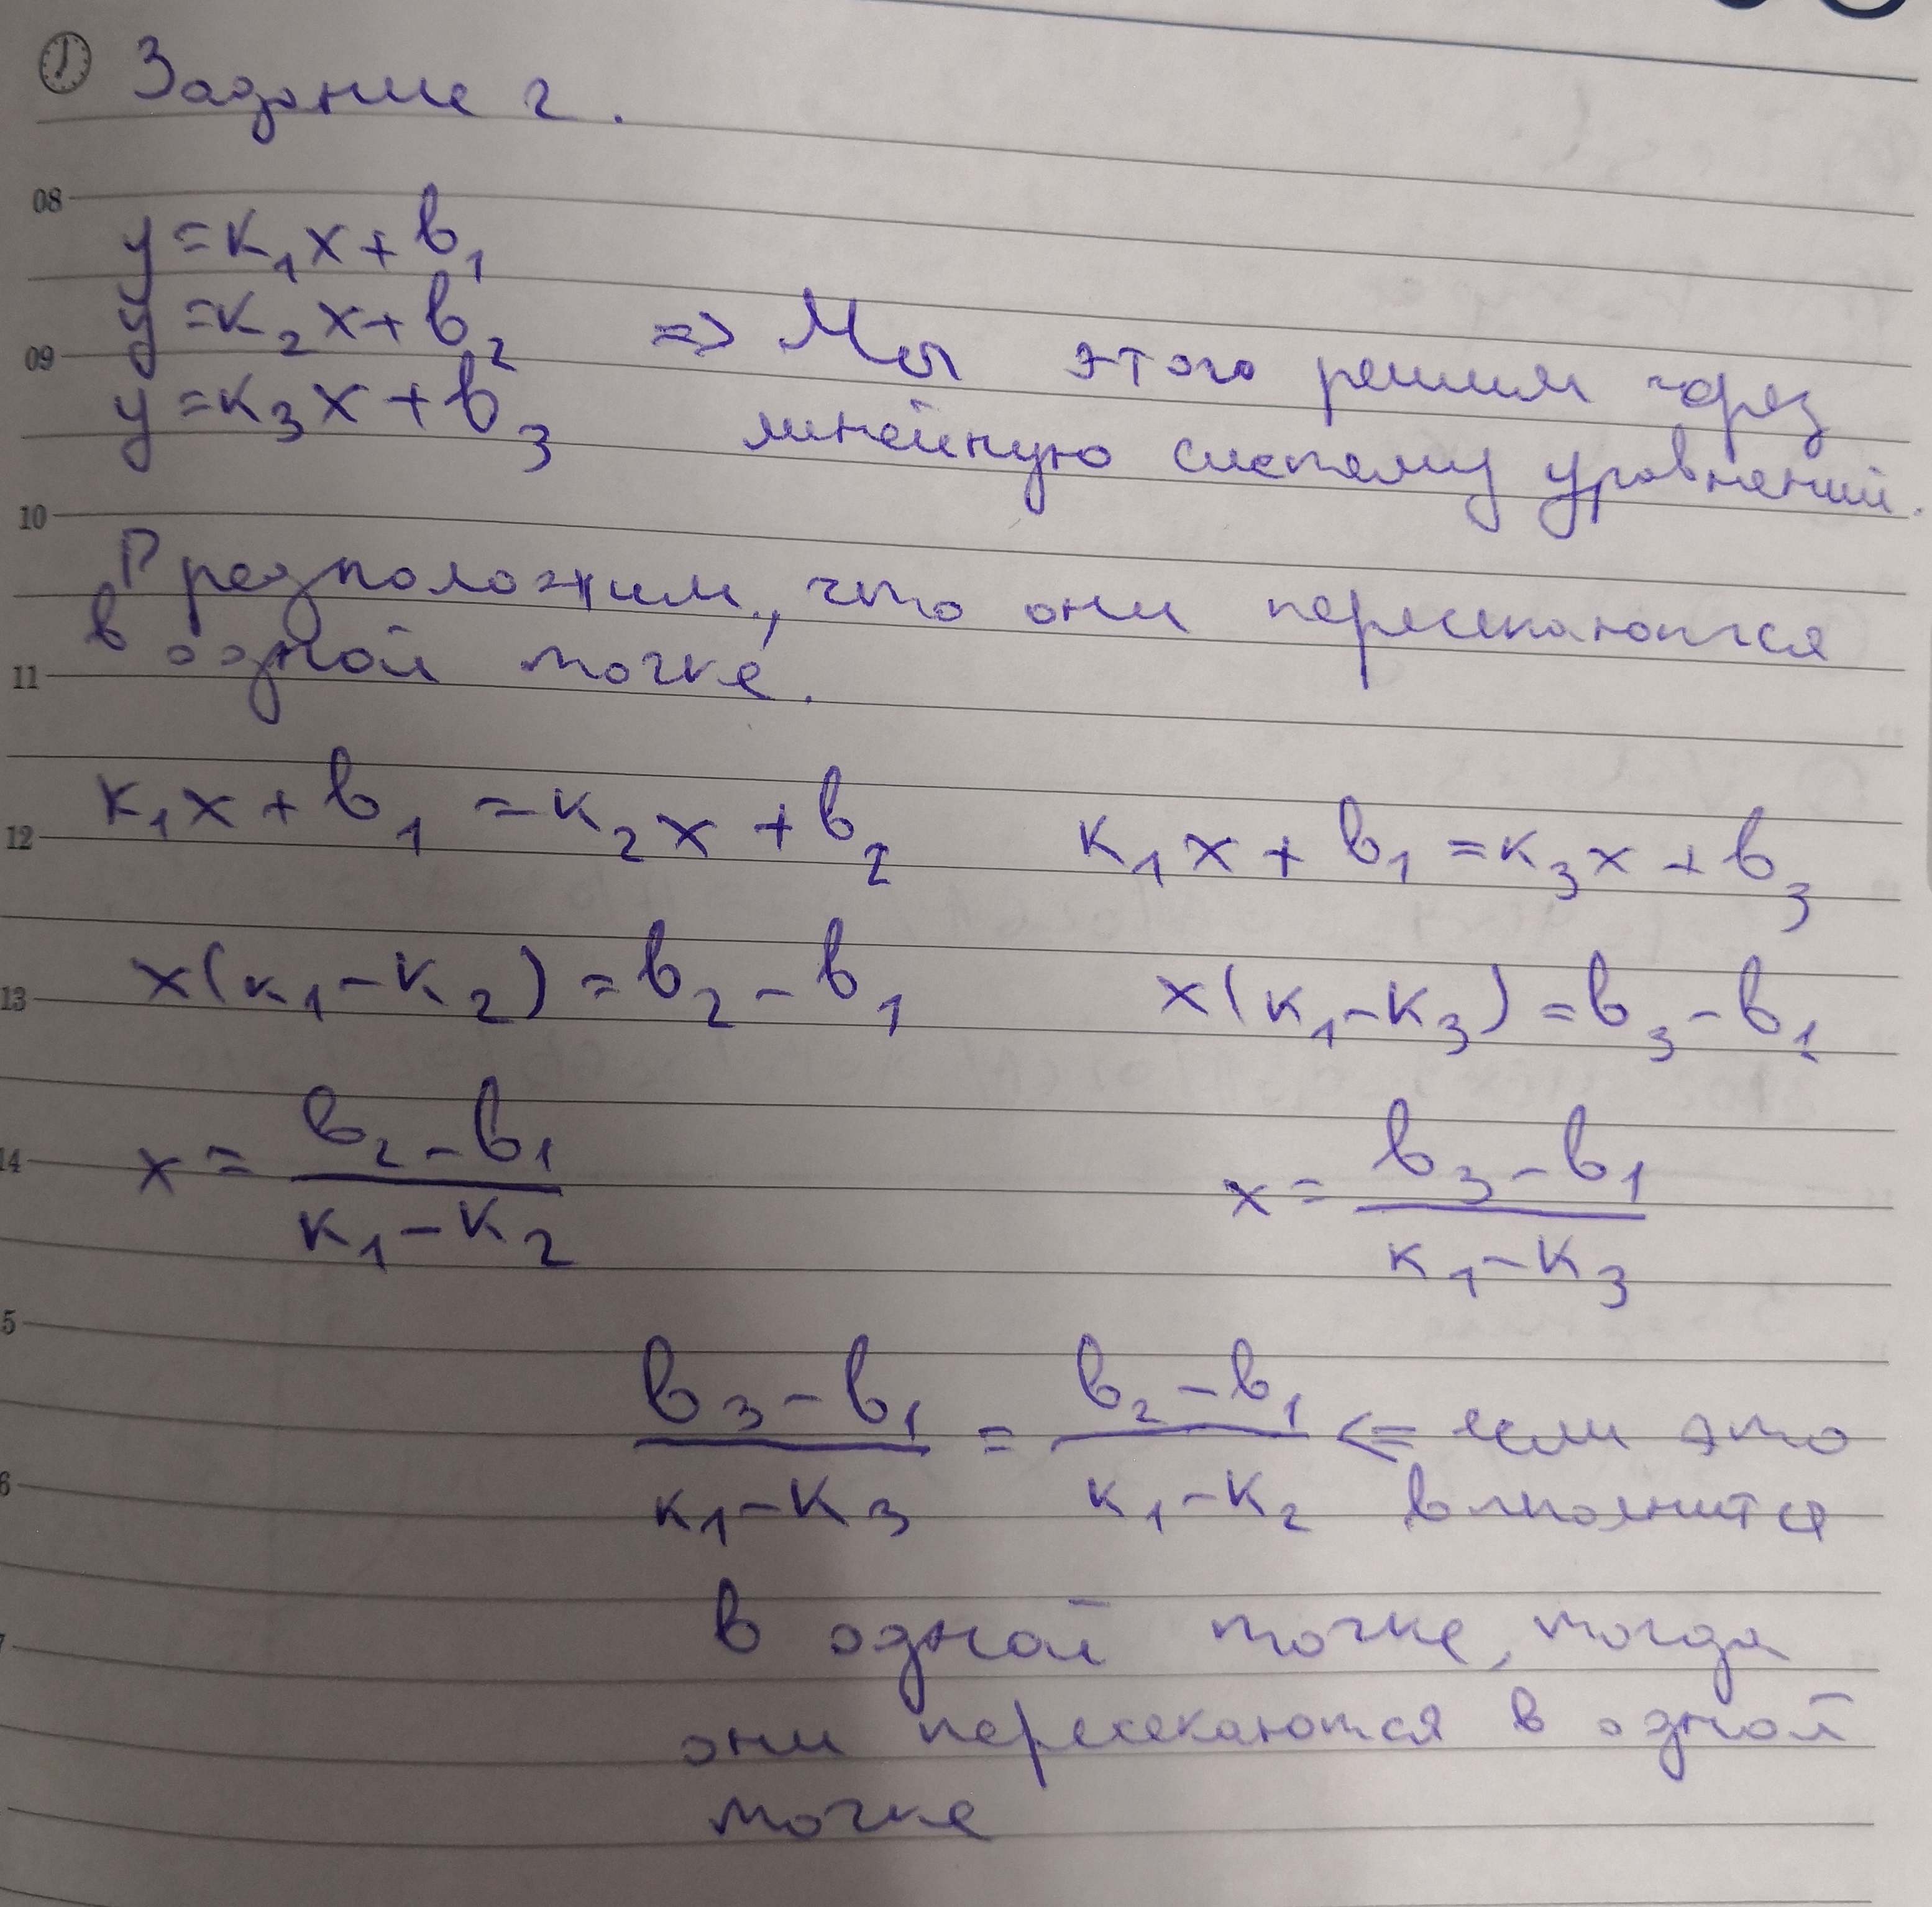 Задание 2.
08
y = k₁x + b₁
y = k₂x + b₂ => Мы этого решим через
09
y = k₃x + b₃ линейную систему уравнений.
10
Предположим, что они пересекаются
в одной точке.
11
k₁x + b₁ = k₂x + b₂ k₁x + b₁ = k₃x + b₃
12
x(k₁ - k₂) = b₂ - b₁ x(k₁ - k₃) = b₃ - b₁
13
x = (b₂ - b₁)/(k₁ - k₂) x = (b₃ - b₁)/(k₁ - k₃)
14
5
(b₃ - b₁)/(k₁ - k₃) = (b₂ - b₁)/(k₁ - k₂) <= если это
6
в одной точке, тогда
7
они пересекаются в одной
точке